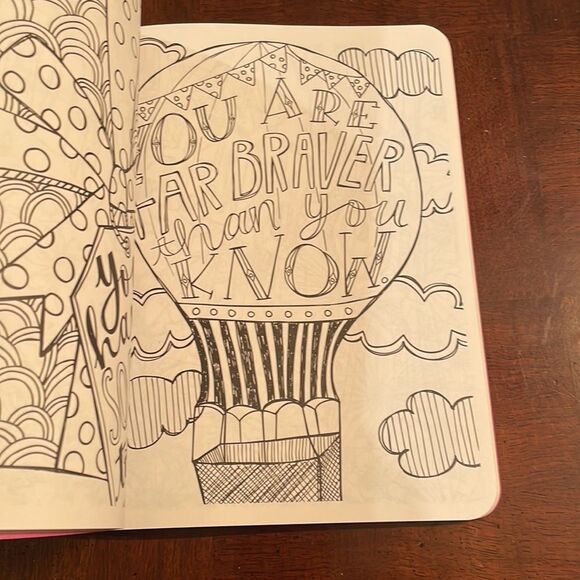 YOU ARE
FAR BRAVER
than you
KNOW.